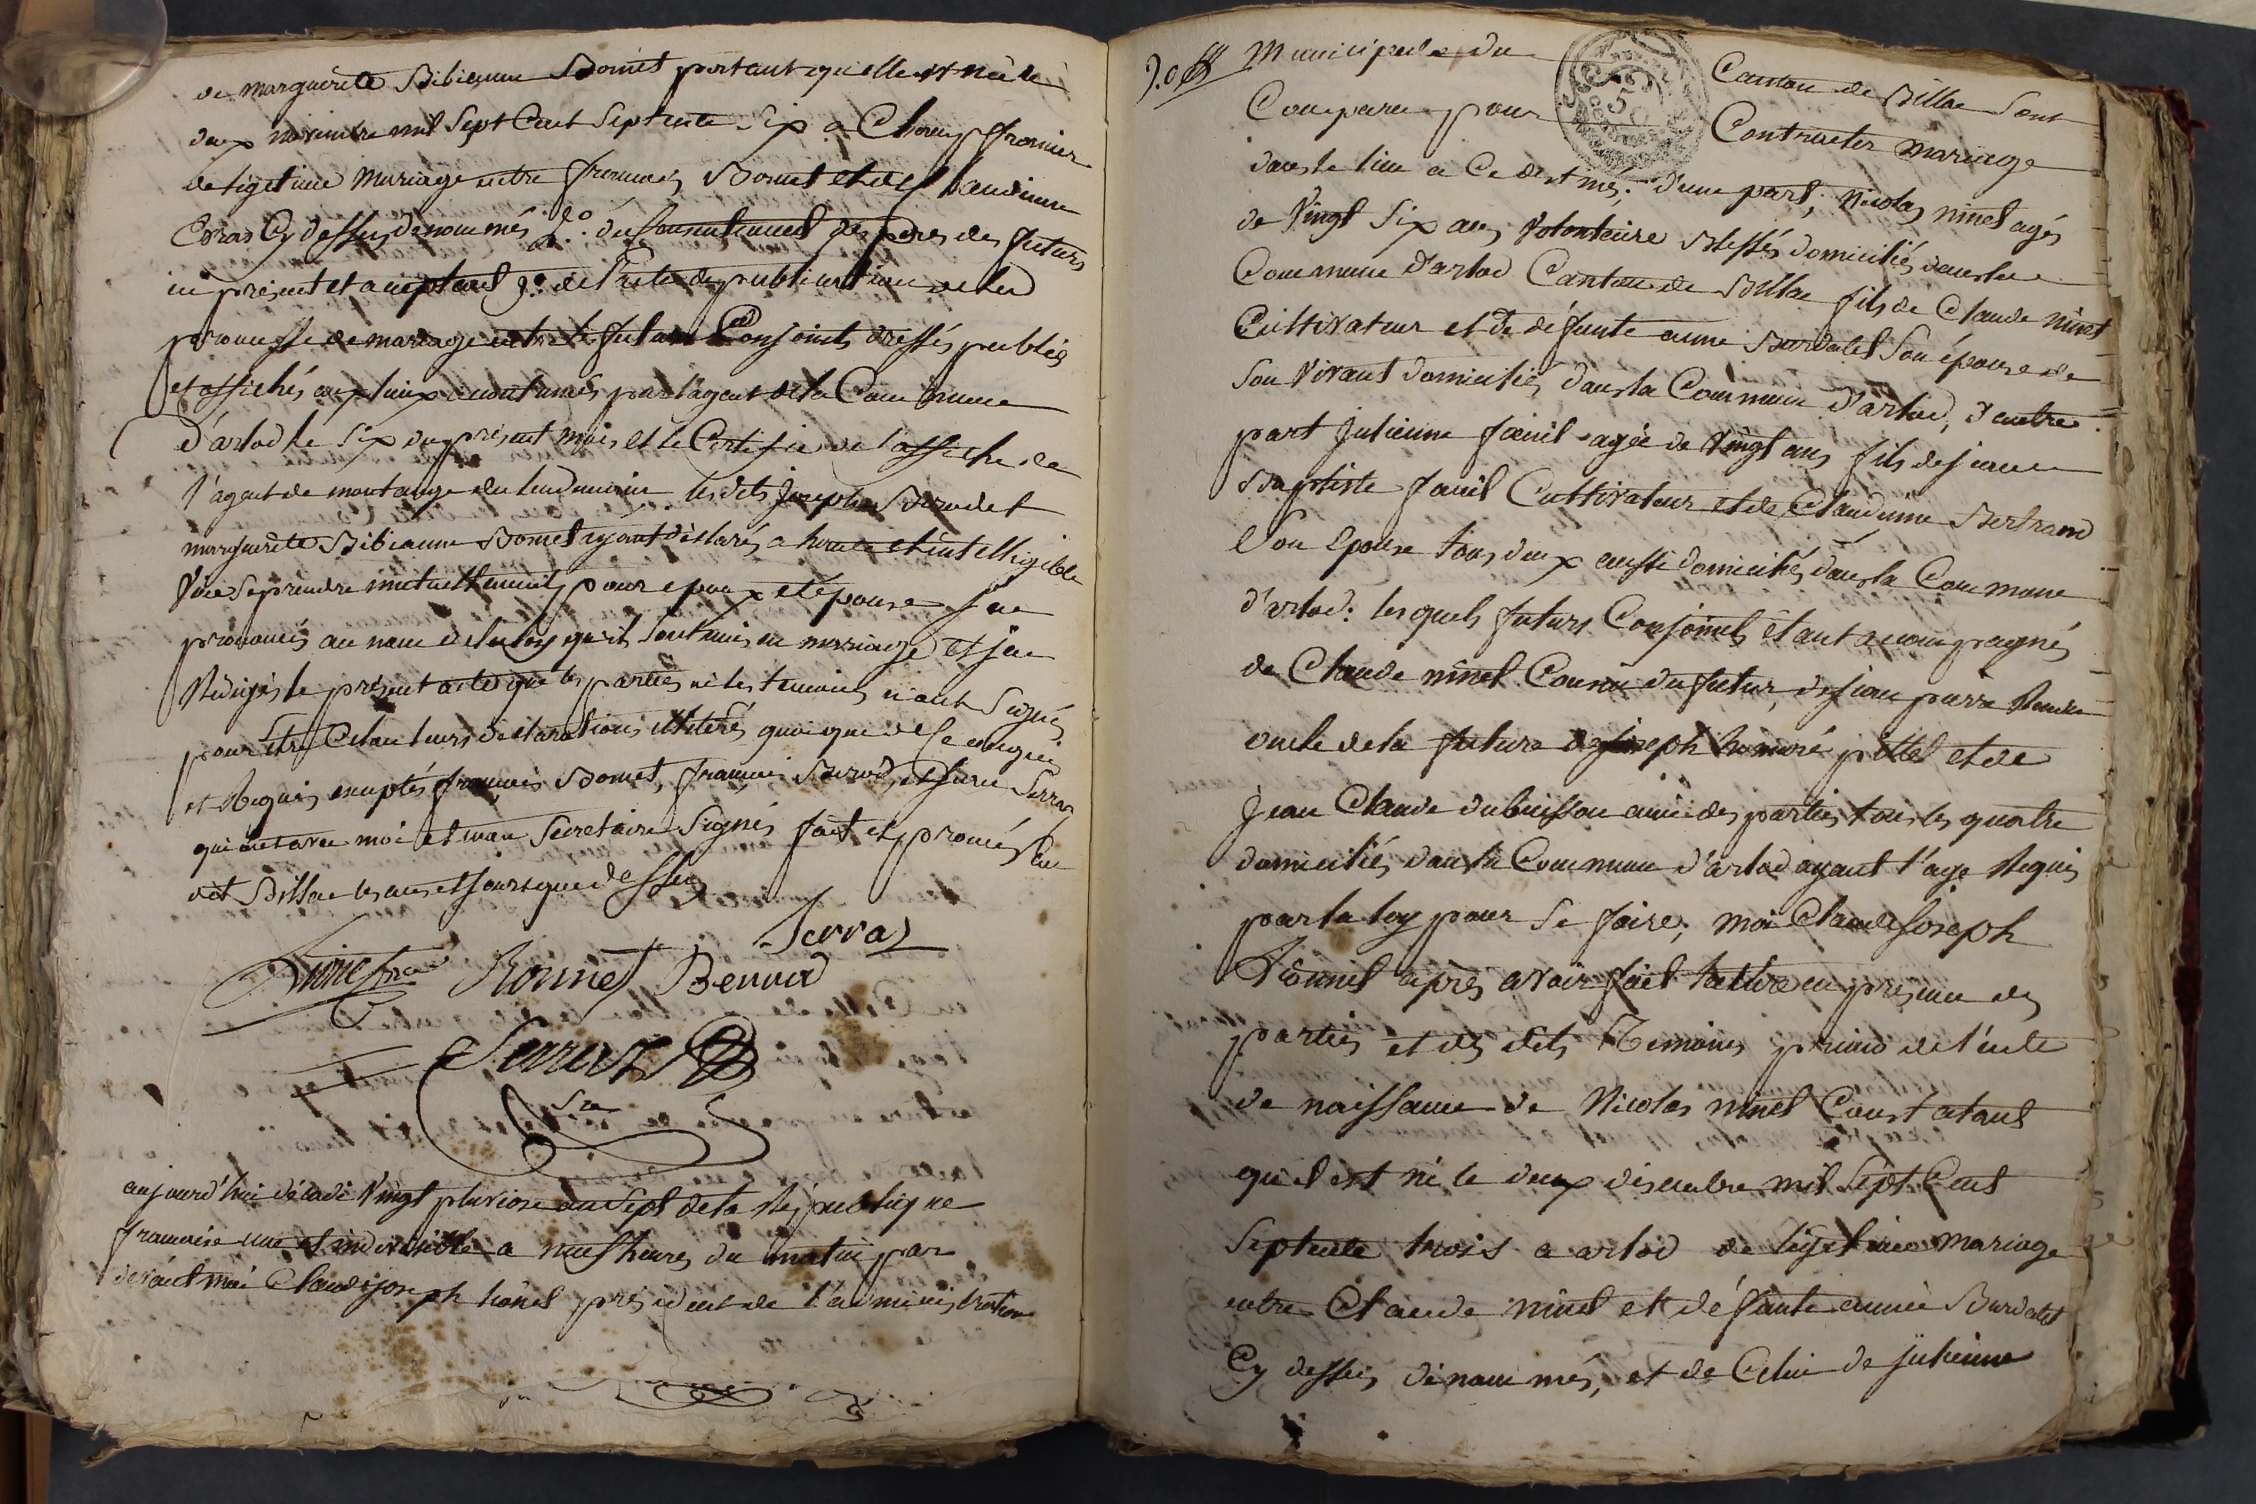 de marguerite Bibienne Bornet portant quelle est née le
deux novembre mil Sept Cent Septente Six a Champfromier
de ligitime Mariage entre francois Bornet et de Claudinne
Coras Cy dessus dénommés 2.o du Consentement des peres des futurs
ici present et acceptant 3.o de l'acte de publication de la
promesse de mariage entre le futurs Conjoints dressés publiés
et affichés aux lieux acoutumés par l'agent de la Commune
d'arlod le Six du present mois et le Certificat de l'affiche de
l'agent de montange du lendemain les dits Joseph Burdet
marguerite Bibianne Bornet ayant déclarés a haute et intelligible
Voie Se prendre mutuellement pour epoux et épouse J'ai
prononcés au nom de la loy qu'il Sont unis en mariage et j'ai
Rédigés le présent acte que les parties ni les temoins n'ont Signés
pour être Celon leurs déclarations illiterés quoique de Ce enquis
et Requis exceptés francois Bornet, francois et Serra
qui ont avec moi et mon Secretaire Signés fait et prononcés au
dit Billac les ans et jours que dessus
Serraz
Bornet Benoid
Sre
aujourd'hui décadi Vingt pluviose an Sept de la République
francaise une et indivisible a neuf heures du matin par
devant moi Claude joseph président de l'administration
Municipale du Canton de Billac Sont
Comparu pour Contracter Mariage
dans le lieu a Ce destinés; d'une part, Nicolas ninet agés
de Vingt Six ans Volontaire Blessés domiciliés dans la
Commune d'arlod Canton de Billac fils de Claude Ninet
Cultivateur et de défunte anne Burdalet Son épouse de
Son Vivant domiciliés dans la Commune d'arlod, d'autre
part Julienne famil agée de Vingt ans fils de jean
Baptiste famil Cultivateur et de Claudinne Bertrand
Son Epouse tous deux aussi domiciliés dans la Commune
d'arlod: lesquels futurs Conjoints étant acompagnés
de Claude ninet Cousin du futur, de jean pierre
oncle de la future de joseph honoré pittet et de
Jean Claude dubuisson amie des parties tous les quatre
domiciliés dans la Commune d'arlod ayant l'age Requis
par la loy pour Se faire; moi Claude Joseph
après avoir fait lecture en présence des
parties et des dits Temoins primo de l'acte
de naissance de Nicolas ninet Constatant
qu'il est né le deux décembre mil Sept Cent
Septente trois a arlod de ligitime mariage
entre Claude ninet et défunte anne Burdalet
Cy dessus dénommés, et de Celui de Julienne